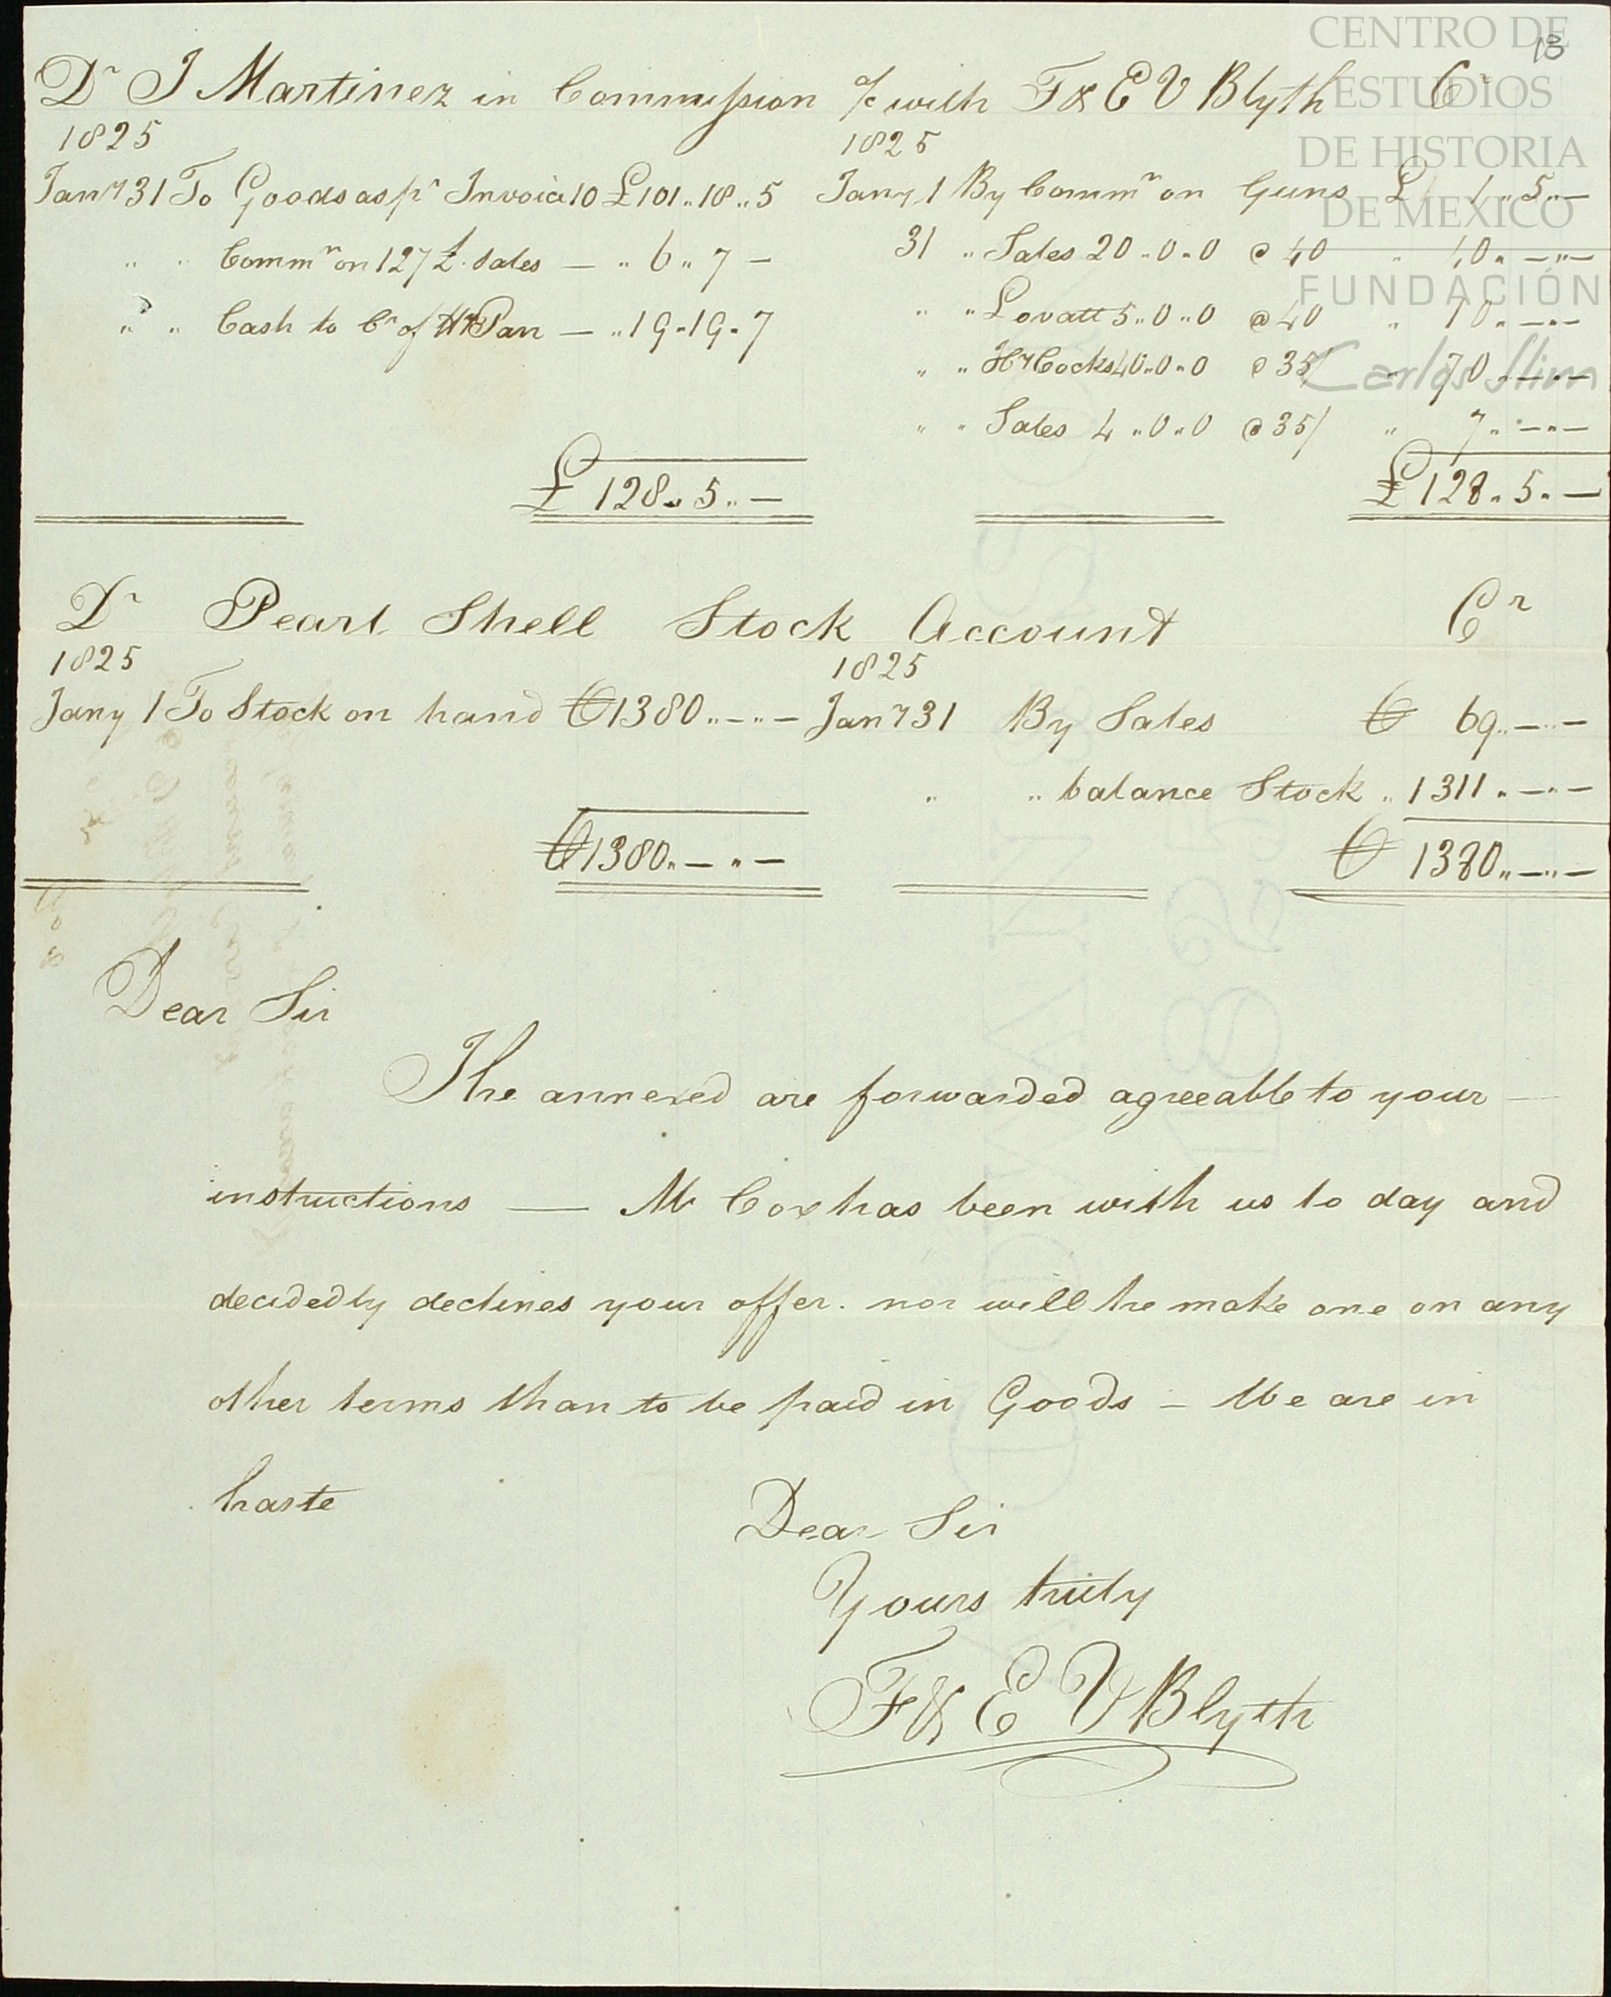 CENTRO DE
ESTUDIOS
DE HISTORIA
DE MEXICO
FUNDACIÓN
Carlos Slim
13
Dr J Martinez in Commission a/c with F & E V Blyth Cr
1825 1825
Jany 31 To Goods as pr Invoice 10 £101..18..5 Jany 1 By Commn on Guns £ 1..5..—
" " Commn on 127£ Sales — " 6..7 — 31 " Sales 20..0..0 @ 40 " 40..—..—
" " Cash to Cr of — " 19..19..7 " " Lovatt 5..0..0 @ 40 " 10..—..—
" " Hy Cocks 40..0..0 @ 35/ " 70..—..—
" " Sales 4..0..0 @ 35/ " 7..—..—
£ 128..5..— £ 128..5..—
Dr Pearl Shell Stock Account Cr
1825 1825
Jany 1 To Stock on hand ₶ 1380..—..— Jany 31 By Sales ₶ 69..—..—
" " balance Stock " 1311..—..—
₶ 1380..—..— ₶ 1380..—..—
Dear Sir
The annexed are forwarded agreeable to your —
instructions — Mr Cox has been with us to day and
decidedly declines your offer. nor will he make one on any
other terms than to be paid in Goods — We are in
haste
Dear Sir
Yours truly
F & E V Blyth